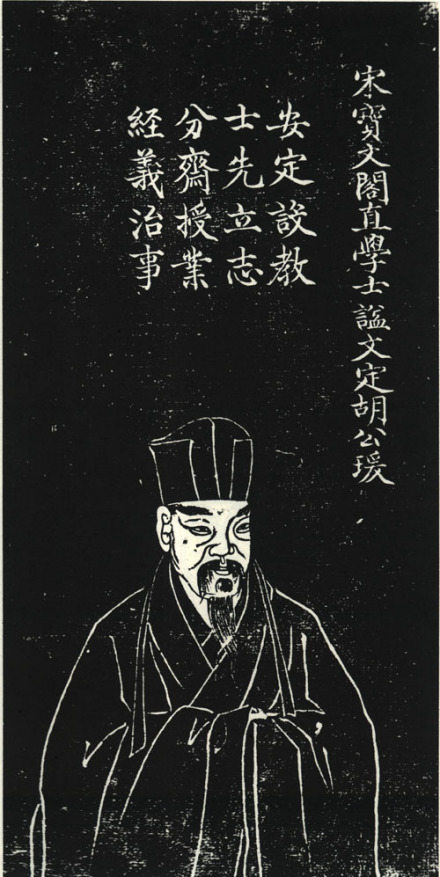 宋寶文閣直學士謚文定胡公瑗
安定設教
士先立志
分齋授業
經義治事